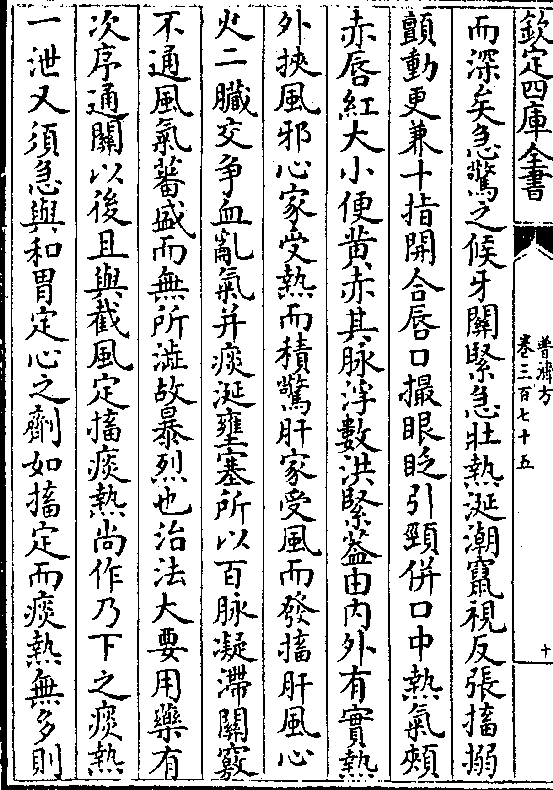 欽定四庫全書
普濟方
卷三百七十五
十
而深矣急驚之候牙關緊急壯熱涎潮竄視反張搐搦
顫動更兼十指開合唇口撮眼眨引頸併口中熱氣頰
赤唇紅大小便黄赤其脉浮數洪緊葢由内外有實熱
外挾風邪心家受熱而積驚肝家受風而發搐肝風心
火二臟交争血亂氣并痰涎壅塞所以百脉凝滯關竅
不通風氣蕃盛而無所泄故暴烈也治法大要用藥有
次序通關以後且與截風定搐痰熱尚作乃下之痰熱
一泄又須急與和胃定心之劑如搐定而痰熱無多則